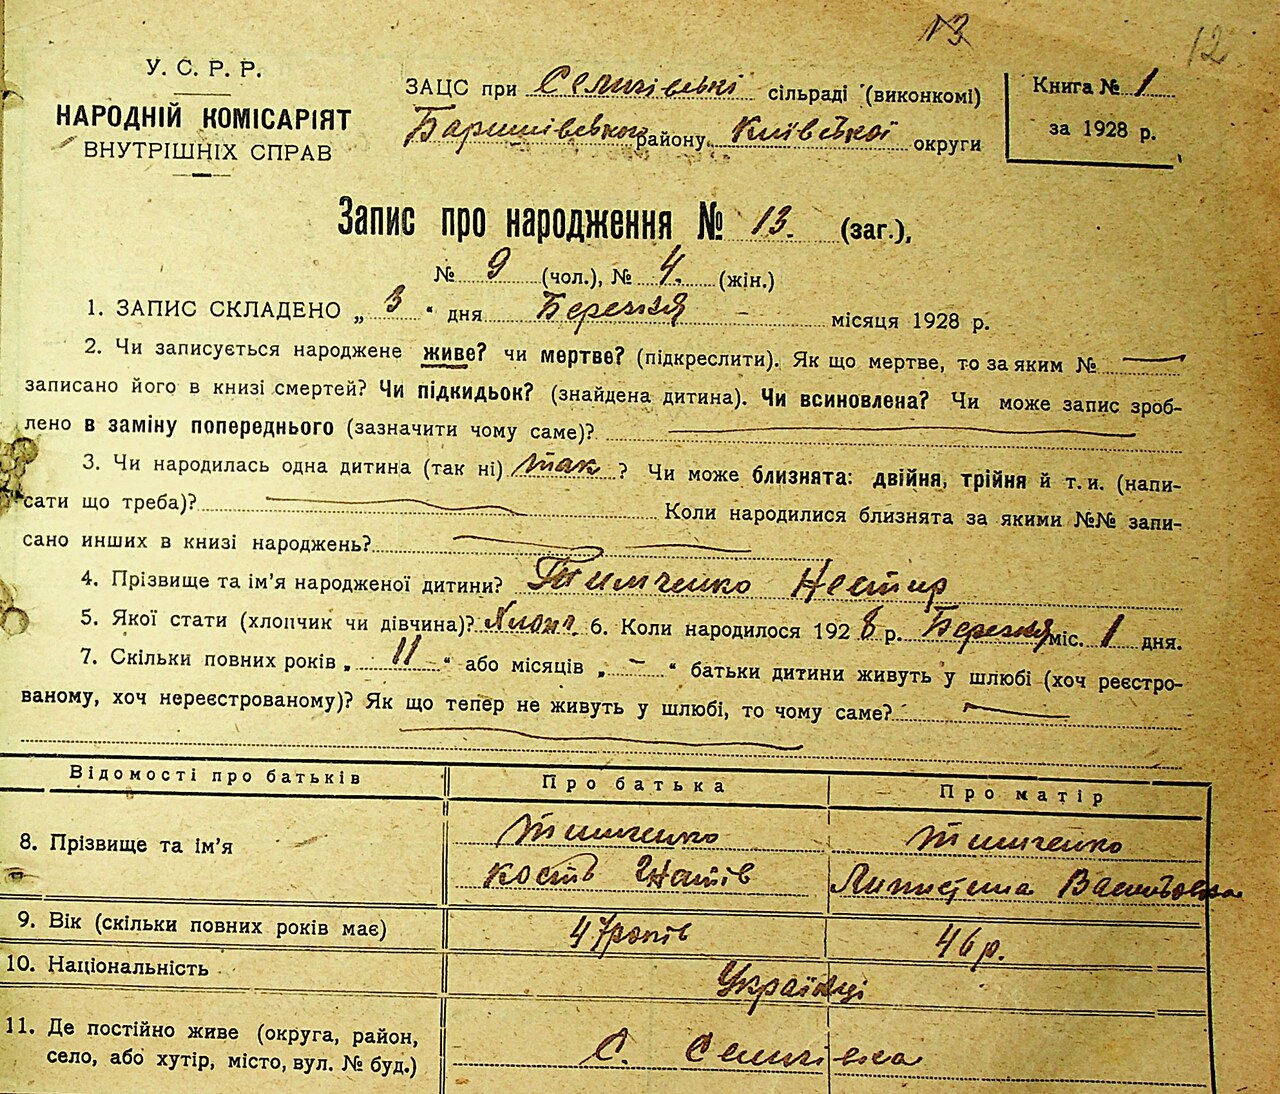 N3
12
У. С. Р. Р.
НАРОДНІЙ КОМІСАРІЯТ
ВНУТРІШНІХ СПРАВ
ЗАЦС при Селичівські сільраді (виконкомі)
Баришівського району Київської округи
Книга № 1
за 1928 р.
Запис про народження № 13. (заг.),
№ 9 (чол.), № 4. (жін.)
1. ЗАПИС СКЛАДЕНО „ 3 “ дня Березня місяця 1928 р.
2. Чи записується народжене живе? чи мертве? (підкреслити). Як що мертве, то за яким №
записано його в книзі смертей? Чи підкидьок? (знайдена дитина). Чи всиновлена? Чи може запис зроб-
лено в заміну попереднього (зазначити чому саме)?
3. Чи народилась одна дитина (так ні) так ? Чи може близнята: двійня, трійня й т. и. (напи-
сати що треба)? Коли народилися близнята за якими №№ запи-
сано инших в книзі народжень?
4. Прізвище та ім’я народженої дитини? Тимченко Нестир
5. Якої статі (хлопчик чи дівчина)? Хлопч. 6. Коли народилося 1928 р. Березня міс. 1 дня.
7. Скільки повних років „ 11 “ або місяців „ – “ батьки дитини живуть у шлюбі (хоч реєстро-
ваному, хоч нереєстрованому)? Як що тепер не живуть у шлюбі, то чому саме?
Відомості про батьків Про батька Про матір
8. Прізвище та ім’я
Тимченко Тимченко
Кость Василівна
9. Вік (скільки повних років має) 47 років 46 р.
10. Національність Українці
11. Де постійно живе (округа, район,
село, або хутір, місто, вул. № буд.) С. Селичівка